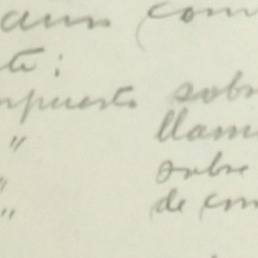 com
te:
mpuesto sobr
" llam
" sobre
" de con